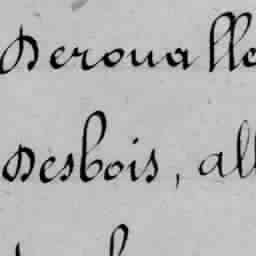 Deroualle
Desbois, all